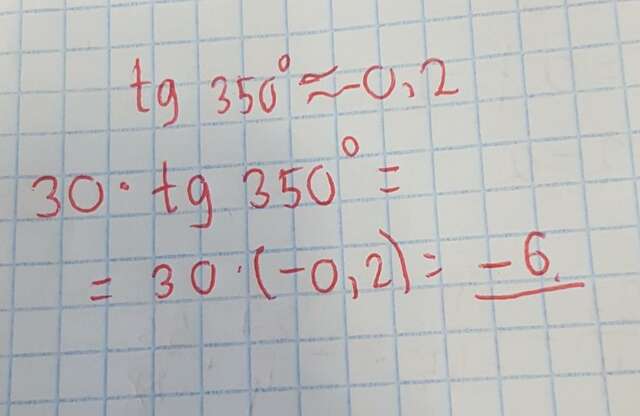 tg 350° ≈ -0,2
30 · tg 350° =
= 30 · (-0,2) = -6.